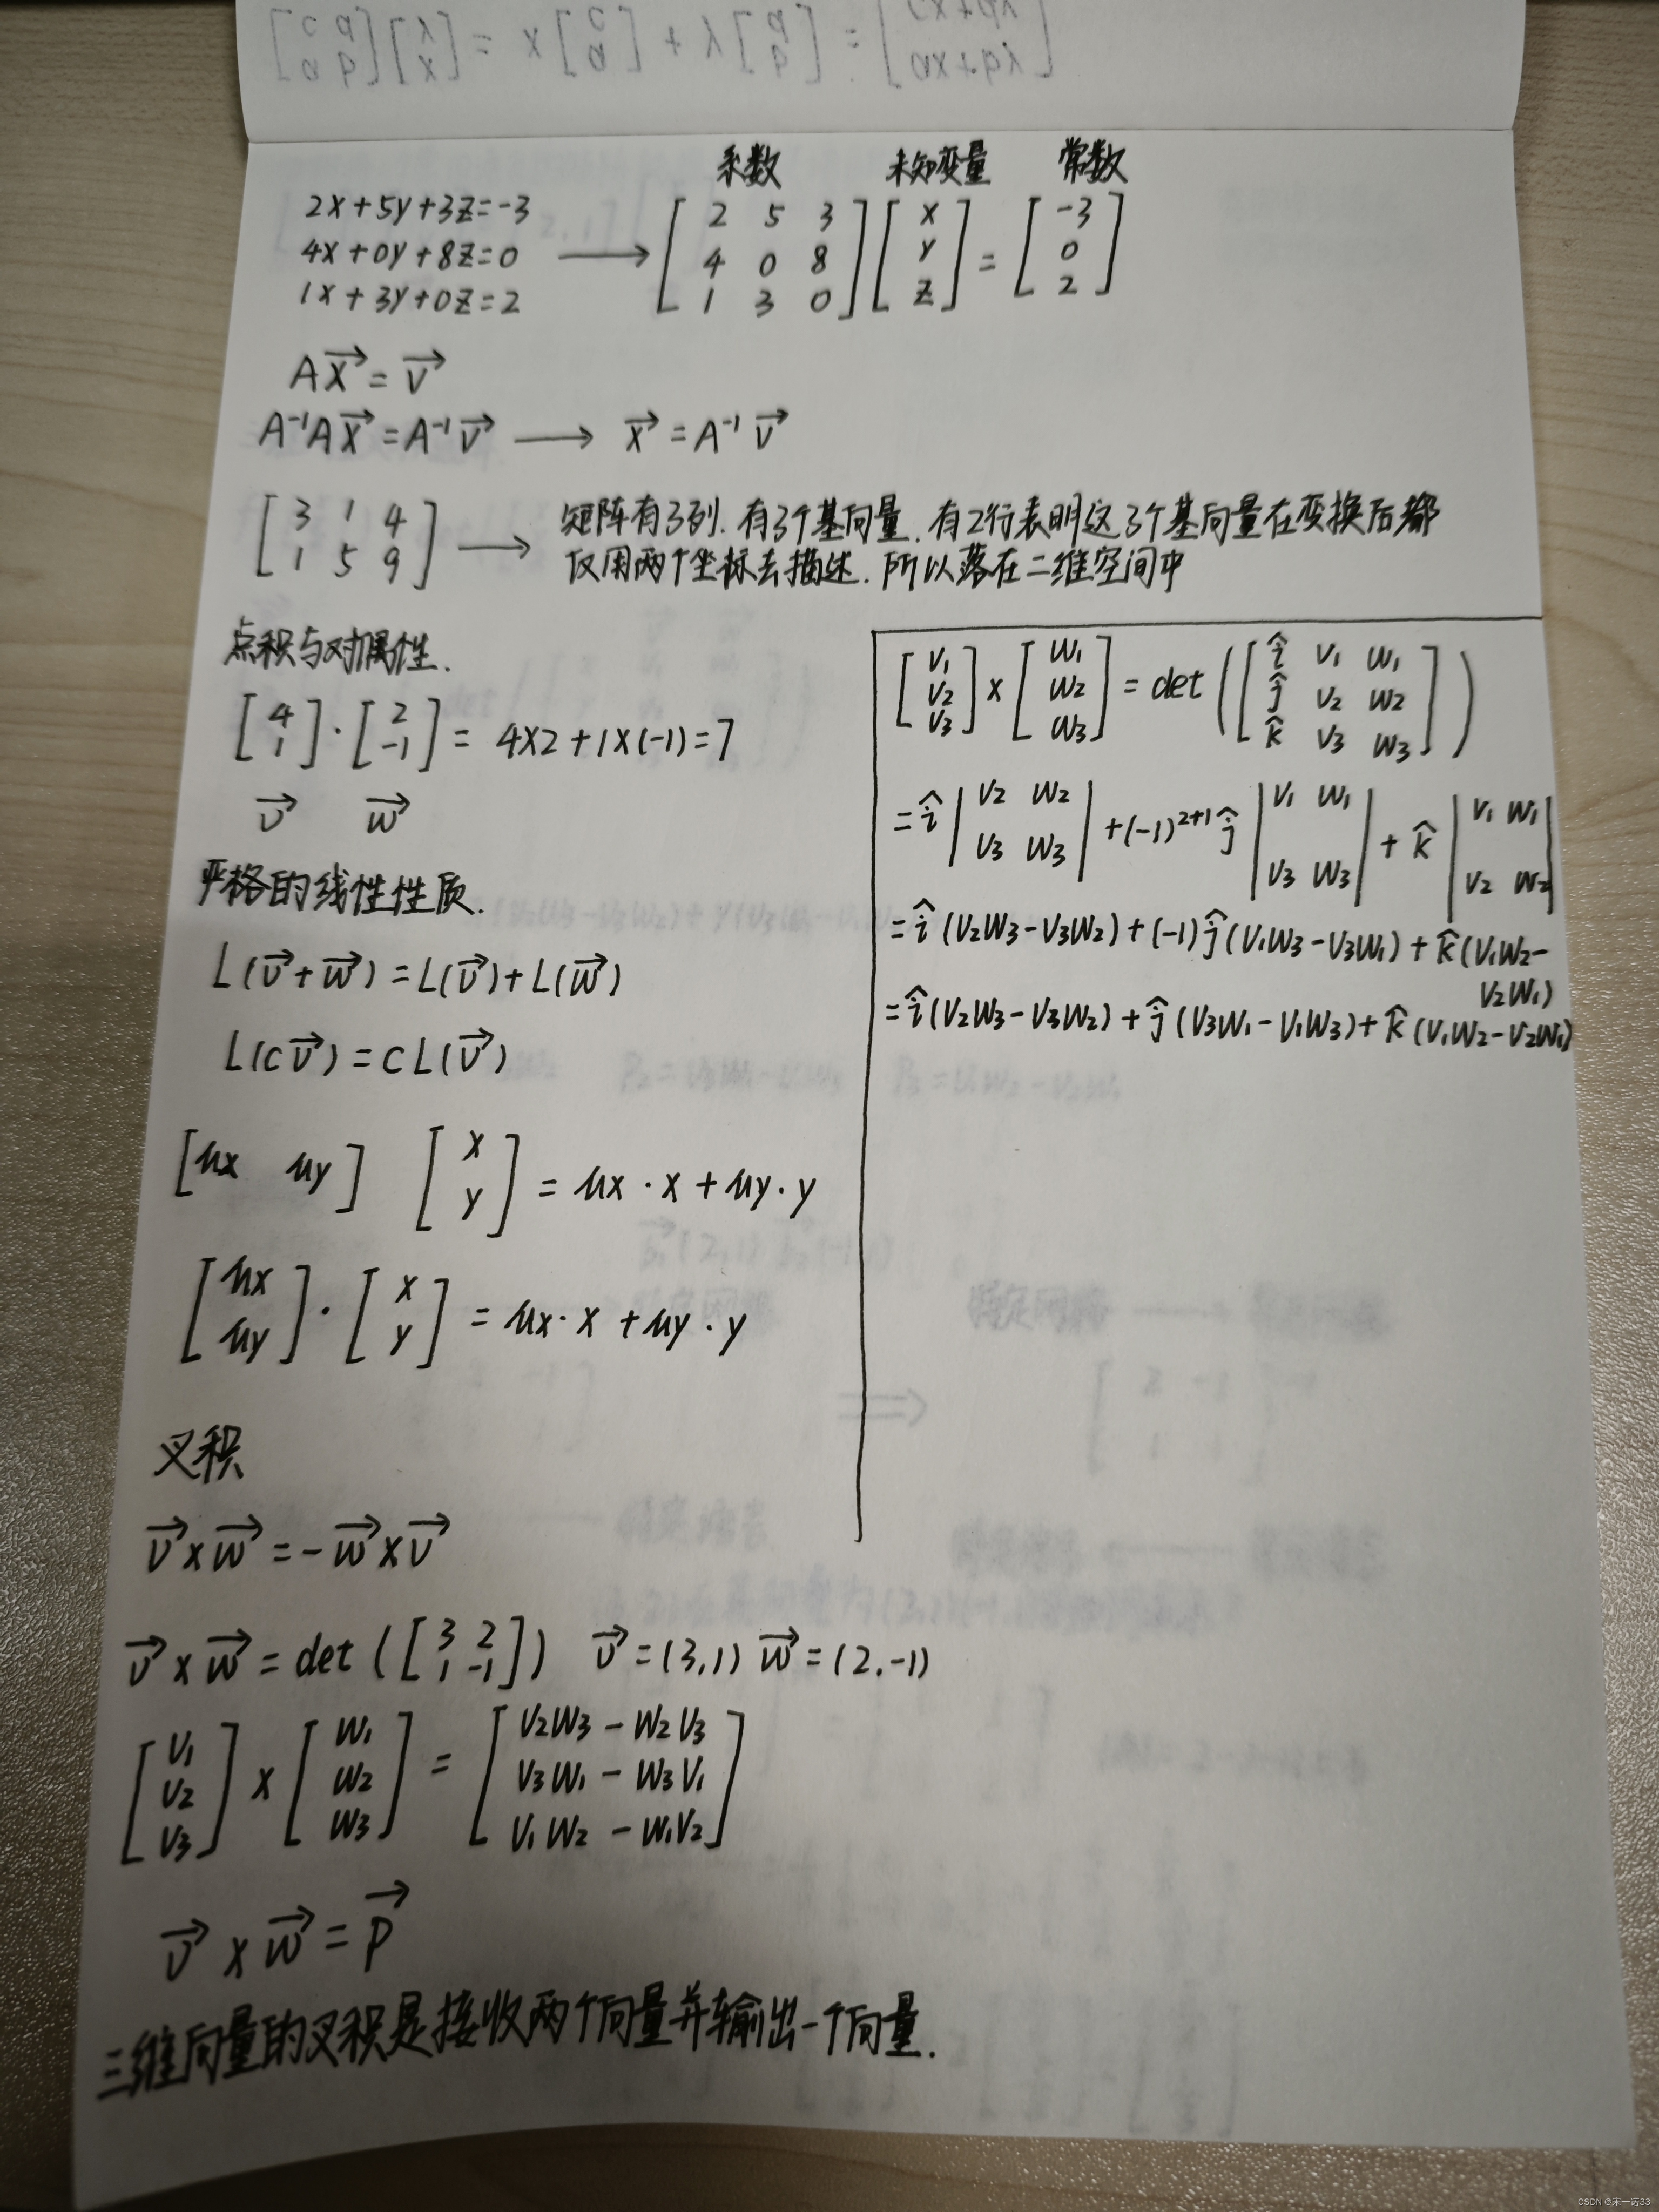 系数 未知变量 常数
2x+5y+3z=-3
4x+0y+8z=0
1x+3y+0z=2
⟶
[2 5 3; 4 0 8; 1 3 0] [x; y; z] = [-3; 0; 2]
A\vec{x} = \vec{v}
A⁻¹A\vec{x} = A⁻¹\vec{v} ⟶ \vec{x} = A⁻¹\vec{v}
[3 1 4; 1 5 9] ⟶ 矩阵有3列.有3个基向量.有2行表明这3个基向量在变换后都
仅用两个坐标去描述.所以落在二维空间中
点积与对偶性.
[4; 1]·[2; -1] = 4×2+1×(-1)=7
\vec{v} \vec{w}
严格的线性性质.
L(\vec{v}+\vec{w}) = L(\vec{v})+L(\vec{w})
L(c\vec{v}) = cL(\vec{v})
[ux uy] [x; y] = ux·x+uy·y
[ux; uy]·[x; y] = ux·x+uy·y
叉积
\vec{v}×\vec{w} = -\vec{w}×\vec{v}
\vec{v}×\vec{w} = det([3 2; 1 -1]) \vec{v}=(3,1) \vec{w}=(2.-1)
[v1; v2; v3]×[w1; w2; w3] = [v2w3-w2v3; v3w1-w3v1; v1w2-w1v2]
\vec{v}×\vec{w} = \vec{p}
三维向量的叉积是接收两个向量并输出一个向量.
[v1; v2; v3]×[w1; w2; w3] = det([î v1 w1; ĵ v2 w2; k̂ v3 w3])
=î|v2 w2; v3 w3|+(-1)²⁺¹ĵ|v1 w1; v3 w3|+k̂|v1 w1; v2 w2|
=î(v2w3-v3w2)+(-1)ĵ(v1w3-v3w1)+k̂(v1w2-
v2w1)
=î(v2w3-v3w2)+ĵ(v3w1-v1w3)+k̂(v1w2-v2w1)
CSDN @宋一诺33